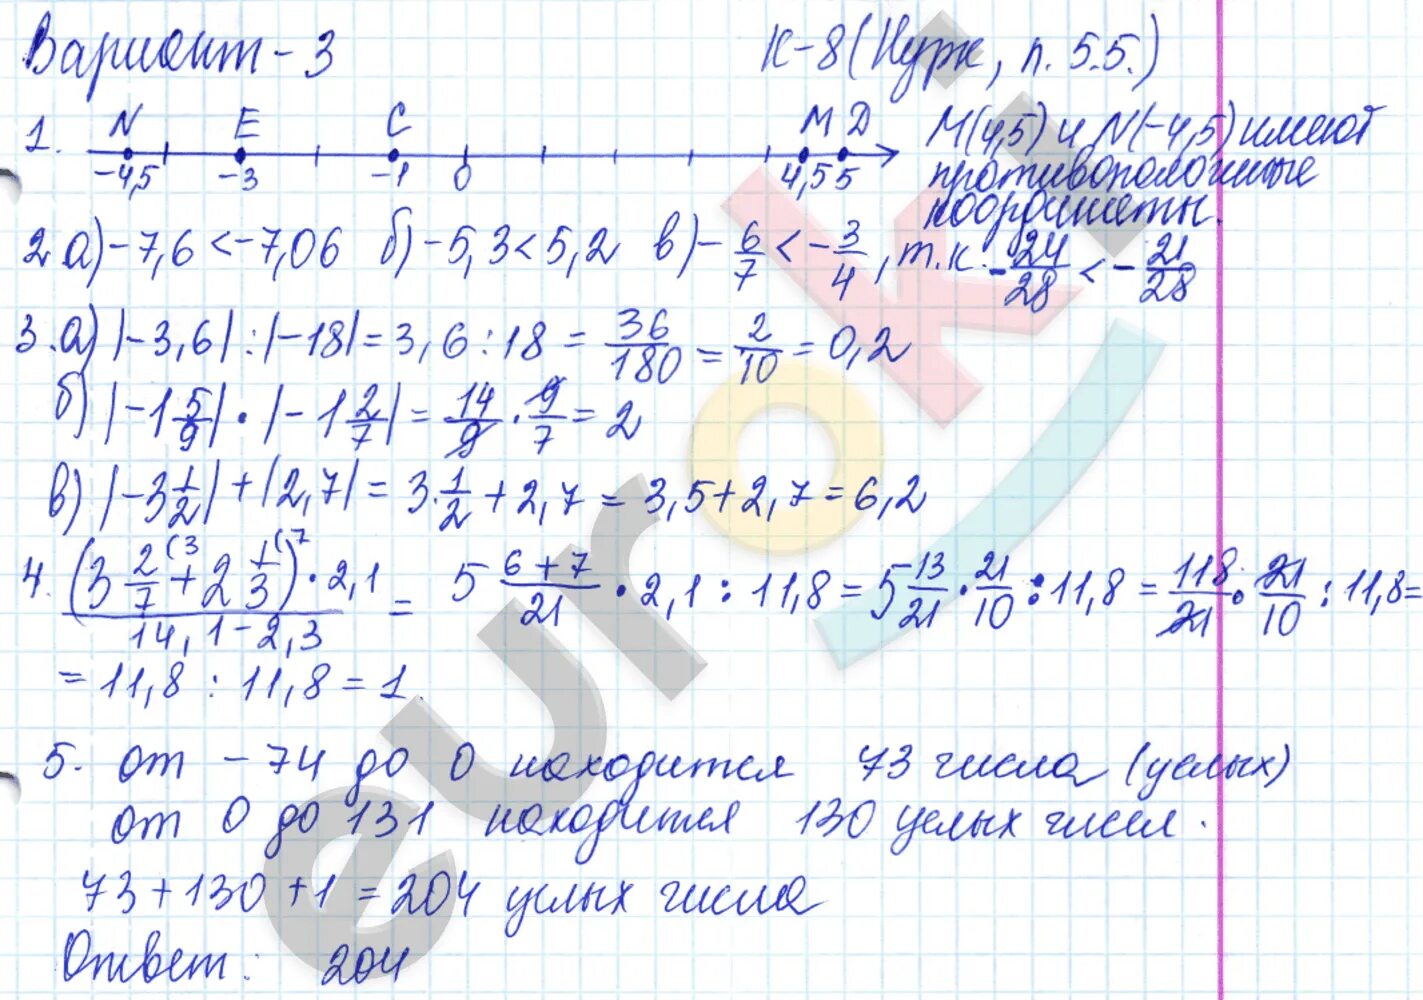 Вариант - 3 К-8 (Нурк, п. 5.5.)
1. N E C M D
-4,5 -3 -1 0 4,5 5
M(4,5) и N(-4,5) имеют
противоположные
координаты.
2. а) -7,6 < -7,06 б) -5,3 < 5,2 в) -6/7 < -3/4, т.к. -24/28 < -21/28
3. а) |-3,6| : |-18| = 3,6 : 18 = 36/180 = 2/10 = 0,2
б) |-1 5/9| · |-1 2/7| = 14/9 · 9/7 = 2
в) |-3 1/2| + |2,7| = 3 1/2 + 2,7 = 3,5 + 2,7 = 6,2
4. (3 2/7 (3 + 2 1/3 (7) · 2,1 / 14,1 - 2,3 = 5 6+7/21 · 2,1 : 11,8 = 5 13/21 · 21/10 : 11,8 = 118/21 · 21/10 : 11,8 =
= 11,8 : 11,8 = 1.
5. от -74 до 0 находится 73 числа (целых)
от 0 до 131 находится 130 целых чисел.
73 + 130 + 1 = 204 целых числа
Ответ: 204
euroki